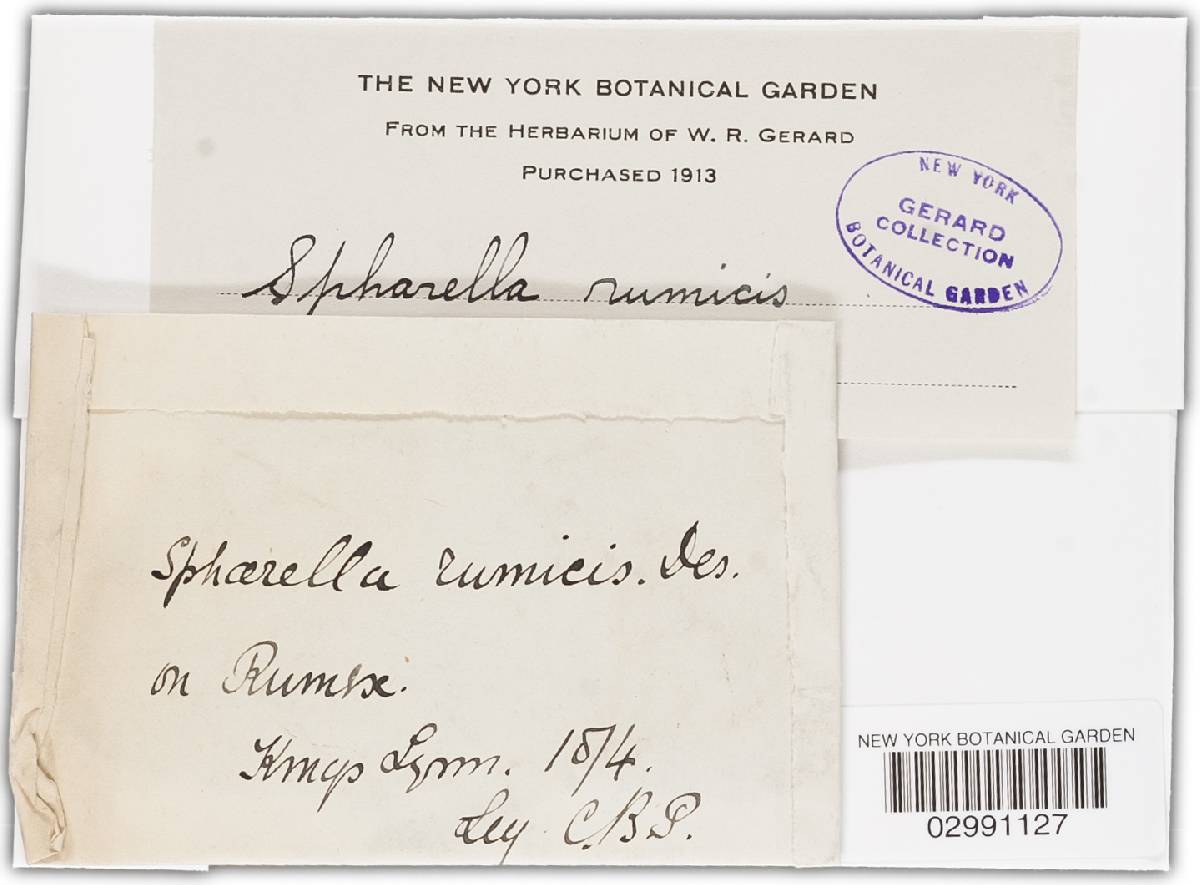 THE NEW YORK BOTANICAL GARDEN
FROM THE HERBARIUM OF W. R. GERARD
PURCHASED 1913
NEW YORK
GERARD
COLLECTION
BOTANICAL GARDEN
Sphaerella rumicis
Sphærella rumicis. Des.
on Rumex.
Kings Lynn. 1874.
Leg C.B.P.
NEW YORK BOTANICAL GARDEN
02991127